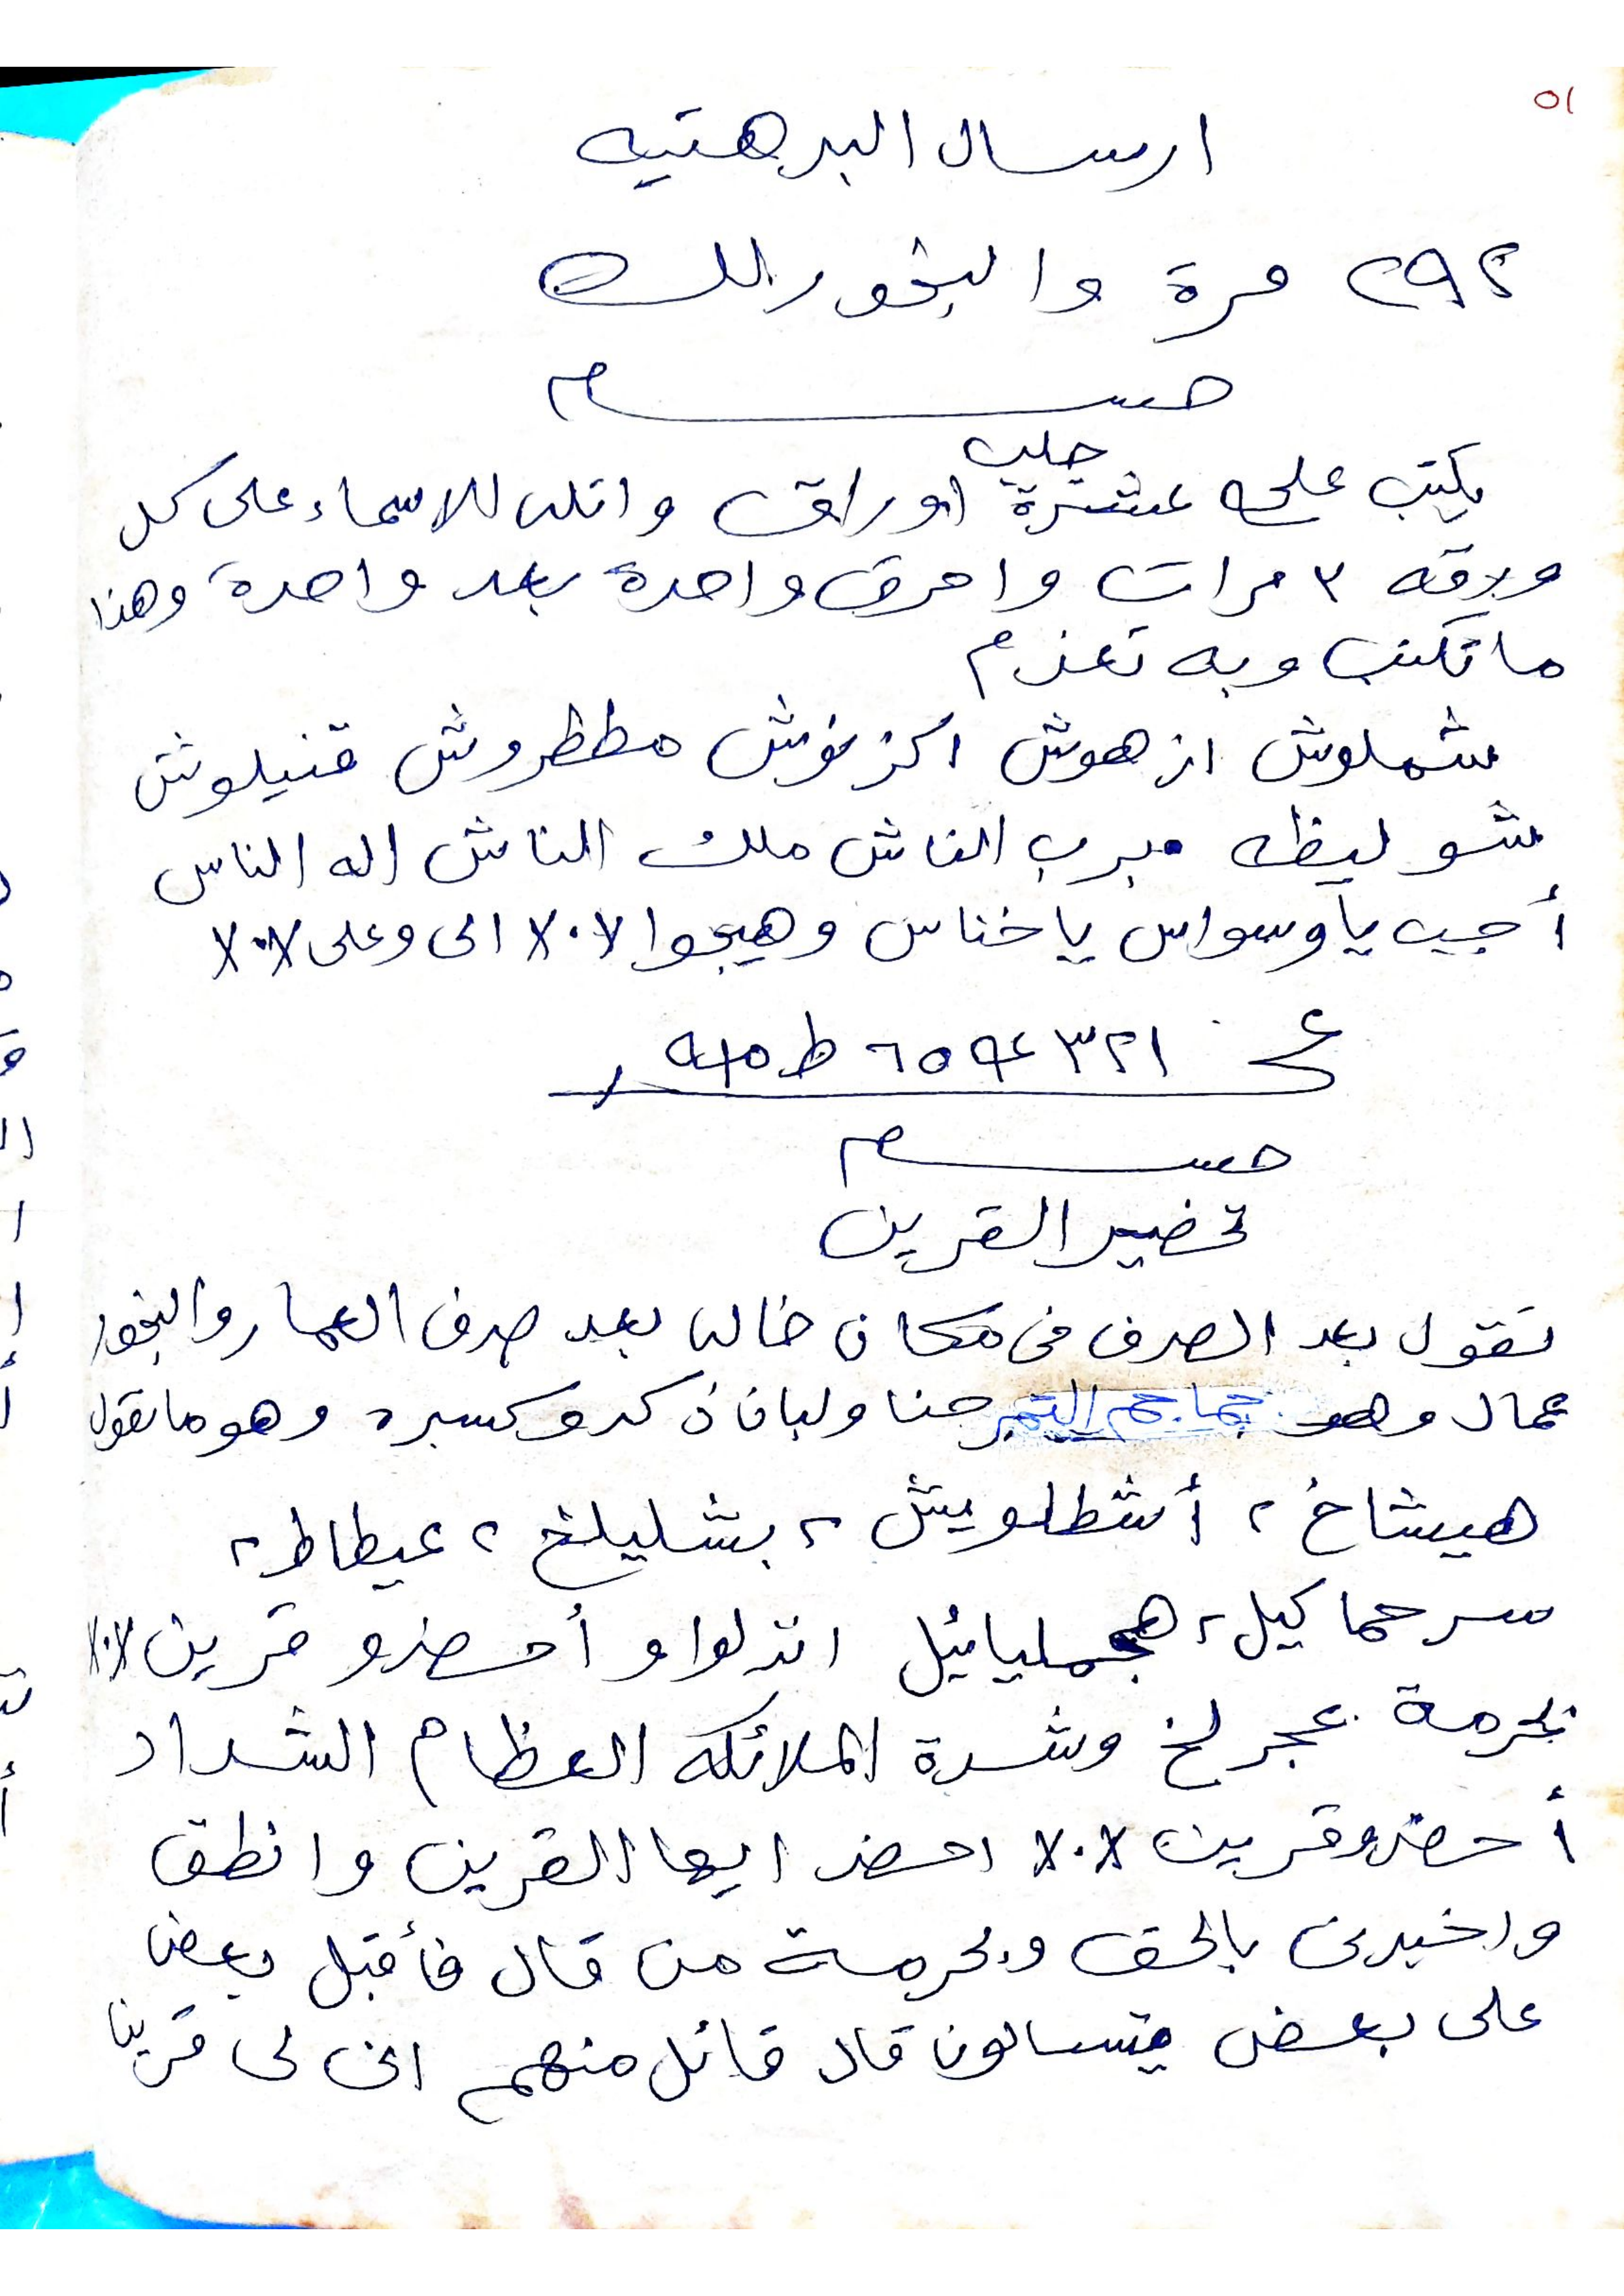 ٥١
ارسال البرهتيه
٢٩٢ مرة والبخور لك
حسام
جلب
يكتب على عشرة اوراق واتلى للاسماء على كل
ورقه ٣ مرات واحرق واحدة بعد واحدة وهذا
ماتكتب وبه تعزم
شملوش ازهوش اكزنوش مططروش قنيلوش
شوليظه برب الناس ملك الناس اله الناس
أجب ياوسواس ياخناس وهيجوا ٧٠٧ الى وعلى ٧٠٧
٣٢١
حسام
تحضير القرين
تقول بعد الصرف فى مكان خالى بعد صرف العمار والبخور
عمال وهو جماجم التمر حنا ولبان ذكر وكسبره وهو ماتقول
هيشاخ ٢ أشطلويش ٢ بشليلخ ٢ عيطاط ٢
سرحماكيل ٢ هجمليائيل انزلوا وأحضرو قرين ٧٠٧
بحرمة عجرلخ وشدة الملائكه العظام الشداد
أحضرو قرين ٧٠٧ احضر ايها القرين وانطق
واخبرنى بالحق وبحرمة من قال فأقبل بعض
على بعض يتسالون قال قائل منهم انى لى قرينا